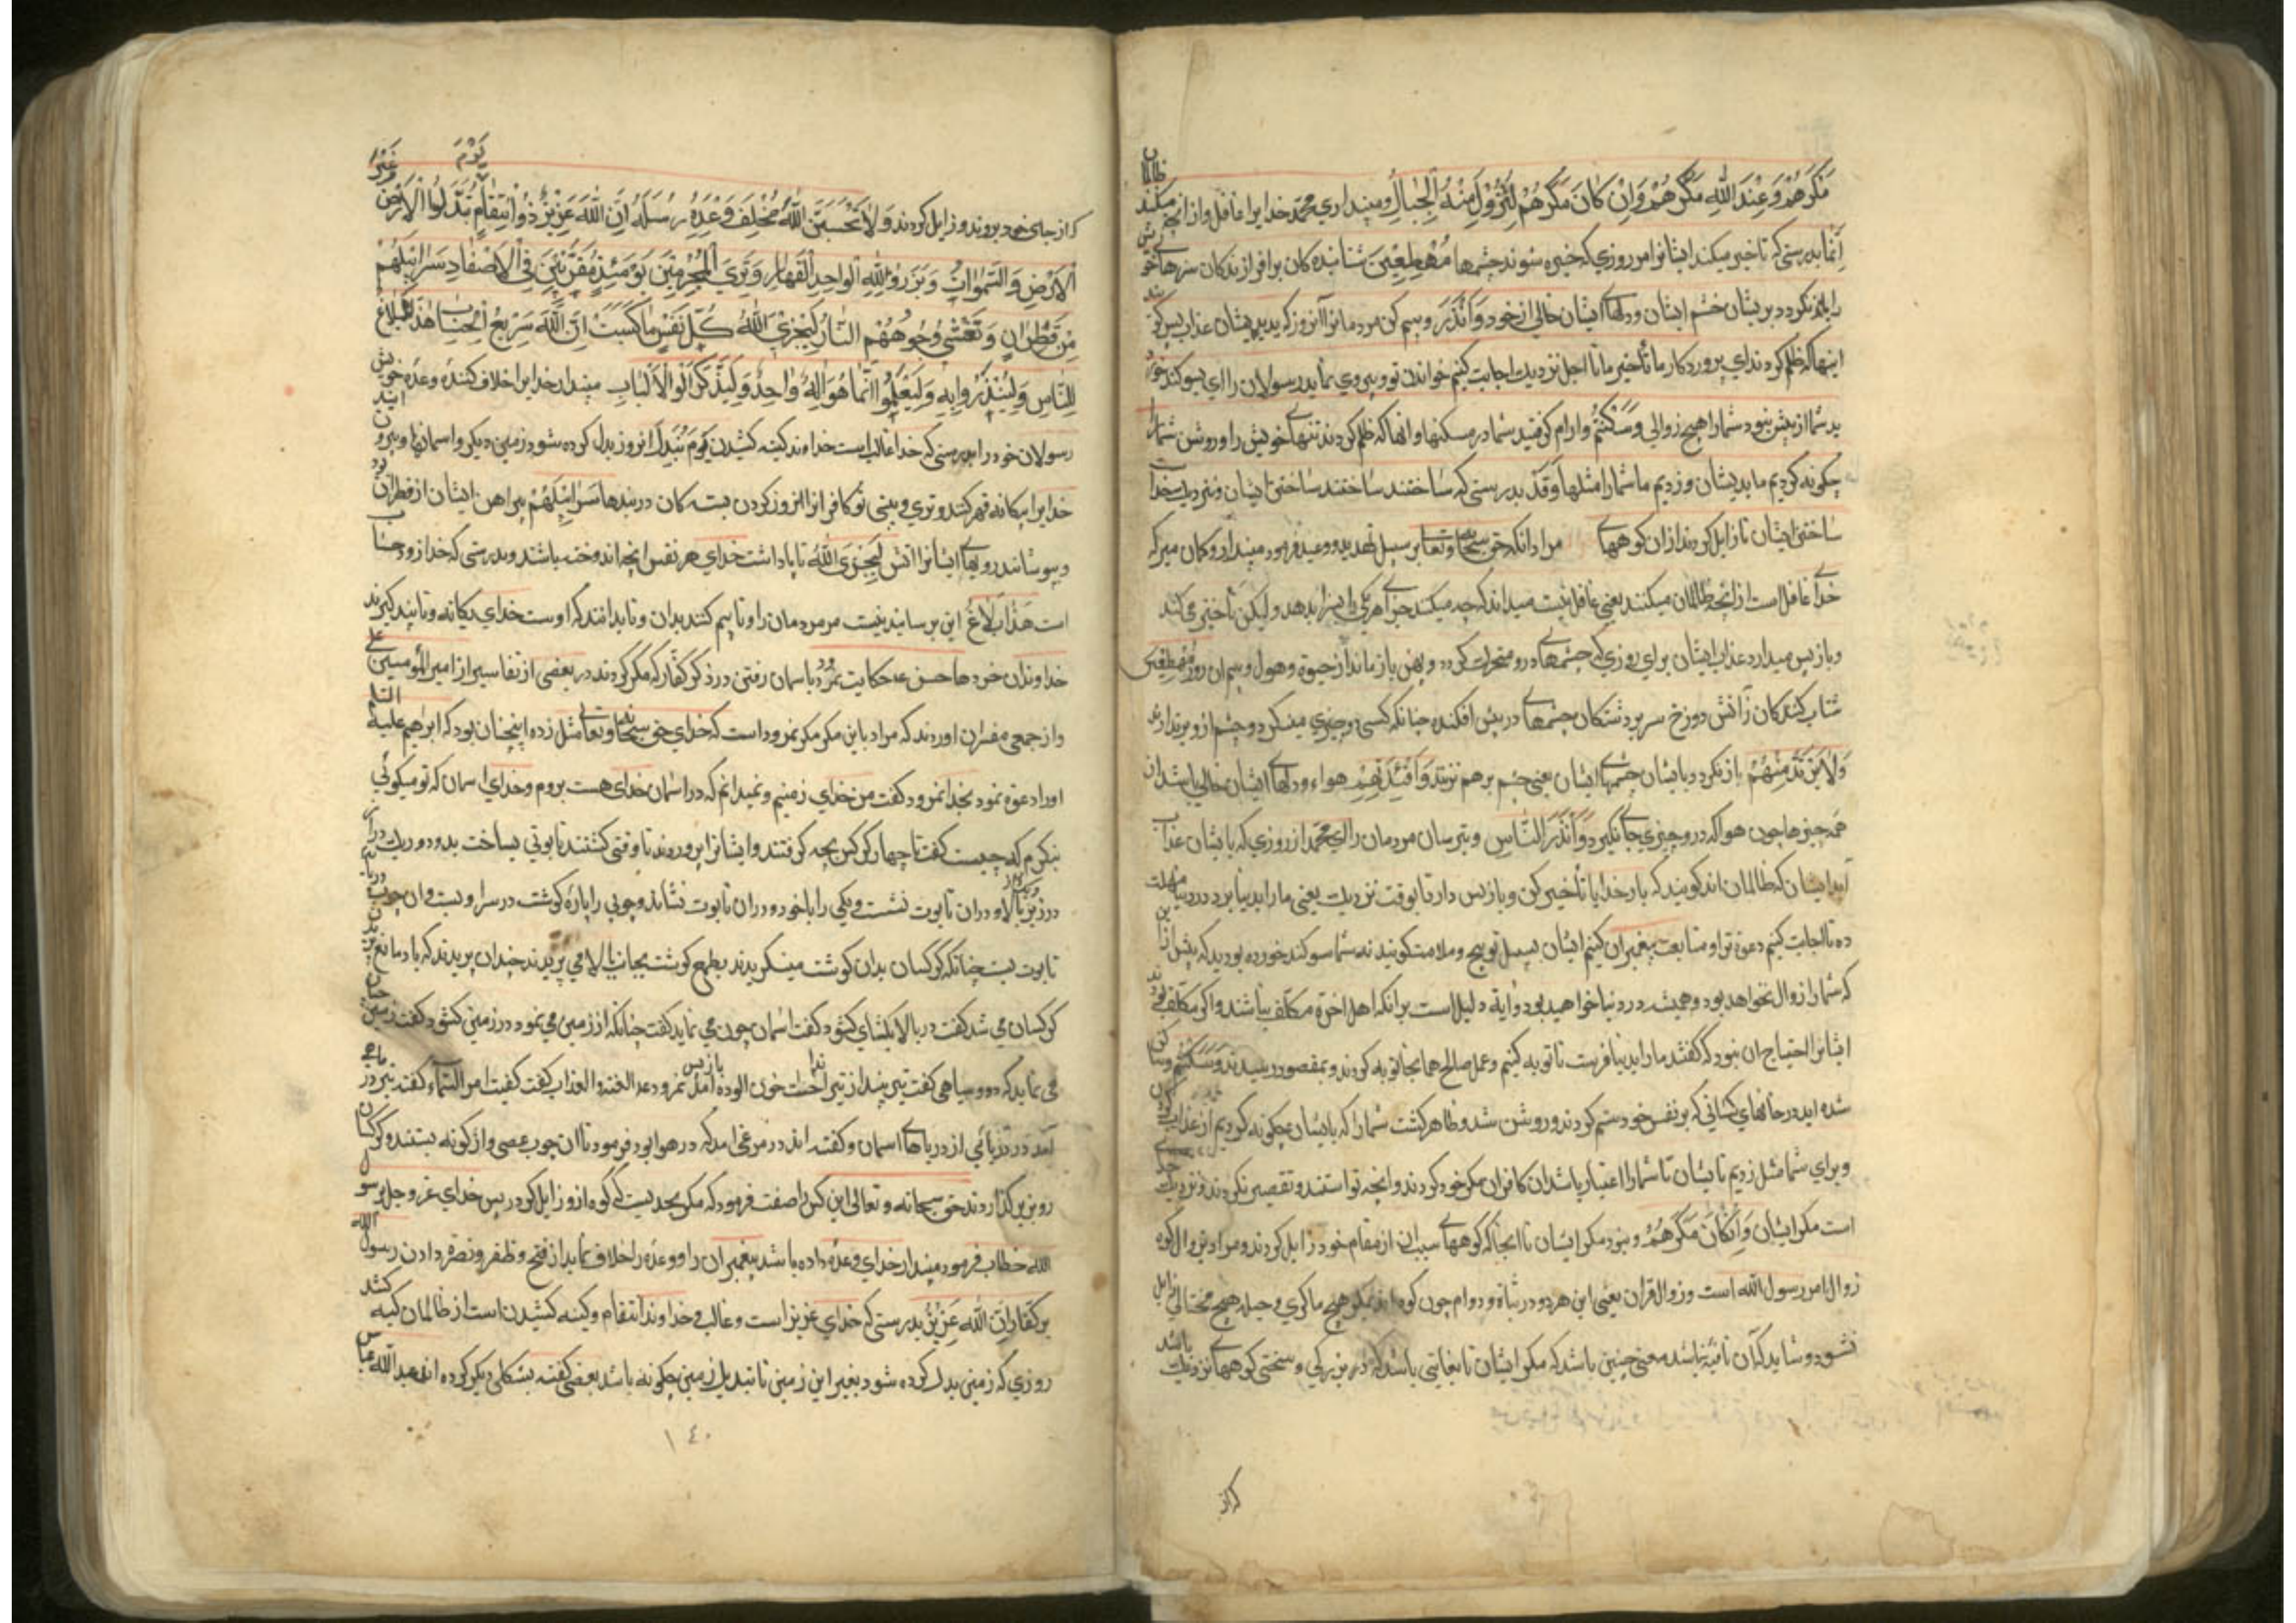 مَكَرَهُمْ وَعِنْدَ اللّٰهِ مَكْرُهُمْ وَاِنْ كَانَ مَكْرُهُمْ لِتَزُولَ مِنْهُ الْجِبَالُ ومپنداری محمد خدایرا غافل واز انچه میکنند ظالمان
اِنَّمَا بدرستی که تاخیر میکند ایشانرا مر روزی که خیره شوند چشمها مُهْطِعِينَ شتابنده کان برافرازندکان سرهای خویش
را باز نکردد بریشان چشم ایشان ودلهای ایشان خالی از خود وَاَنْذِرْ وبیم کن مردمانرا آنروز که بدیدیشان عذاب پس کویند
اینها که ظلم کردند ای پروردکار ما تأخیر ما تا اجل نزدیك اجابت کنیم خواندن تو وپیروی نماید رسولان را ای سوکند خور
ید شما از پیش نبود شما را هیچ زوالی وَسَكَنْتُمْ وارام کرفتید شما در مسکنها وانها که ظلم کردند تنهای خویش را وروشن شد شما را
چکونه کردیم ما بدیشان وزدیم ما شما را مثلها وَقَدْ بدرستی که ساختند ساختند ساختن ایشان ونزدیك خدا
ساختن ایشان تا زایل کردند ازان کوههای مراد انکه حق سبحانه وتعالی بر سبیل تهدید ووعید فرمود مپندار وکمان مبر که
خدای غافل است از انچه ظالمان میکنند یعنی غافل نیست میداند که چه میکنند جزای هر یکی را بسزا بدهد ولیکن تأخیر می کند
وبازپس میدارد عذاب ایشان برای روزی که چشمهای درو متحیر کردد وپهن باز ماند از حیوة وهول وبیم ان روز مُهْطِعِينَ
شتاب کنندکان زآتش دوزخ سر بردشتکان چشمهای در پیش افکنده چنانکه کسی در چیزی مینکرد وچشم ازو برندارد
وَلَا يَرْتَدُّ مِنْهُمْ باز نکردد بایشان چشمهای ایشان یعنی چشم برهم نزنند وَاَفْئِدَتُهُمْ هواء ودلهای ایشان خالی باشد از
همه چیزها چون هوا که درو چیزی جای نکیرد وَاَنْذِرِ النَّاسَ وبترسان مردمان را ای محمد از روزی که بایشان عذاب
آید ایشان که ظالمان اند کویند که بار خدایا تأخیر کن وبازپس دار تا بوقت نزدیك یعنی ما را بدنیا برد در دنیا مهلت
ده تا اجابت کنیم دعوة ترا ومتابعت پیغمبران کنیم ایشان بسبیل توبیخ وملامت کویند نه شما سوکند خورده بودید که پیش ازین
که شما را زوال نخواهد بود وهمیشه در دنیا خواهید بود وآیة دلیل است برانکه اهل اخرة مکلف نباشند واکر مکلف بودند
ایشانرا احتیاج ان نبود که کفتند ما را بدنیا فرست تا توبه کنیم وعمل صالح هم اینجا توبه کردند وبمقصود رسیدند وَسَكَنْتُمْ وساکن
شده اید در جانهای کسانی که بر نفس خود ستم کردند وروشن شد وظاهر کشت شما را که بایشان چکونه کردیم از عذاب
وبرای شما مثل زدیم تا بشان تا شما را اعتبار باشد ان کافران مکر خود کردند وانچه توانستند وتقصیر نکردند ونزدیك خدای
است مکر ایشان وَاِنْ كَانَ مَكْرُهُمْ ونبود مکر ایشان تا انجا که کوههای بسبب ان از مقام خود زایل کردند ومراد بزوال کوه
زوال امر رسول الله است وزوال قران یعنی این هر دو در ثباة ودوام چون کوه اند بمکر هیچ ماکری وحیله هیچ محتالی زایل
نشود وشاید که ان نافیة نباشد معنی چنین باشد که مکر ایشان تا بغایتی باشد که در بزرکی وسختی کوههای نزدیك باشد
که از
که از جای خود بروند وزایل کردند وَلَا تَحْسَبَنَّ اللّٰهَ مُخْلِفَ وَعْدِهِ رُسُلَهُ اِنَّ اللّٰهَ عَزِيزٌ ذُو انْتِقَامٍ يَوْمَ تُبَدَّلُ الْاَرْضُ غَيْرَ
الْاَرْضِ وَالسَّمٰوَاتُ وَبَرَزُوا لِلّٰهِ الْوَاحِدِ الْقَهَّارِ وَتَرَى الْمُجْرِمِينَ يَوْمَئِذٍ مُقَرَّنِينَ فِي الْاَصْفَادِ سَرَابِيلُهُمْ
مِنْ قَطِرَانٍ وَتَغْشٰى وُجُوهَهُمُ النَّارُ لِيَجْزِيَ اللّٰهُ كُلَّ نَفْسٍ مَا كَسَبَتْ اِنَّ اللّٰهَ سَرِيعُ الْحِسَابِ هٰذَا بَلَاغٌ
لِلنَّاسِ وَلِيُنْذَرُوا بِهِ وَلِيَعْلَمُوا اَنَّمَا هُوَ اِلٰهٌ وَاحِدٌ وَلِيَذَّكَّرَ اُولُوا الْاَلْبَابِ مپندار خدایرا خلاف کننده وعده خویش
رسولان خود را بدرستی که خدا غالب است خداوند کینه کشیدن يَوْمَ تُبَدَّلُ انروز بدل کرده شود زمین دیکر واسمانها وبیرون ایند
خدایرا یکانه قهر کننده وتری وبینی تو کافرانرا انروز کردن بسته کان در بندها سَرَابِيلُهُمْ پیراهن ایشان از قطران بود
وپوشانند رویهای ایشانرا اتش لِيَجْزِيَ اللّٰهُ تا پاداشت خدای هر نفس انچه اندوخت باشند وبدرستی که خدا زود حساب
است هٰذَا بَلَاغٌ این برسانیدنیست مر مردمان را وتا بیم کنند بدان وتا بدانند که اوست خدای یکانه وتا پند کیرند
خداوندان خردها حکایت نمرود باسمان رفتن در ذکر کفار که مکر کردند در بعضی از تفاسیر از امیر المؤمنین علی
واز جمعی مفسران اوردند که مراد باین مکر مکر نمرود است که خدای حق سبحانه وتعالی مثل زده اینچنان بود که ابرهیم علیه السلم
اورا دعوة نمود بخدا نمرود کفت من خدای زمینم ونمیدانم که در اسمان خدای هست بروم وخدای اسمان که تو میکوئی
بنکرم که چیست کفت تا چهار کرکس بچه کرفتند وایشانرا بپروردند تا وقتی کشتند تابوتی بساخت بدو در یك در از
زیر ویك در از بالا ودران تابوت نشست ویکی را با خود دران تابوت نشاند وچوبی را پاره کوشت در سر او بست وان چوب
تابوت بست چنانکه کرکسان بدان کوشت مینکریدند بطمع کوشت بجانب بالا می پریدند چندان پریدند که باد مانع
کرکسان می شد کفت در بالا بکشای کشود کفت اسمان چون می نماید کفت چنانکه از زمین می نمود در زمین کشود کفت زمین
می نماید که دود سیاهی کفت تیر بینداز تیر انداخت خون الوده باز پس امد کفت کفیت امر السماء کفته تیر در
آمد در دریائی از دریاهای اسمان وکفته اند در مرغی امد که در هوا بود فرمود تا ان چوب عصی واژکونه بستند وکرکسان
رو بزیر کذاردند حق سبحانه وتعالی این کس را صفت فرمود که مکر بحدیست که کوه ازو زایل کردد پس خدای عز وجل برسول
الله خطاب فرمود مپندار خدای وعده داده باشد پیغمبران را ووعده را خلاف نماید از فتح وظفر ونصرة دادن رسول الله
بر کفار اِنَّ اللّٰهَ عَزِيزٌ بدرستی که خدای عزیز است وغالب وخداوند انتقام وکینه کشیدن است از ظالمان کینه کشد
روزی که زمین بدل کرده شود بغیر این زمین تا تبدیل زمین چکونه باشد بعضی کفته بشکلی دیکر کرده اند عبد الله عباس
١٤٠